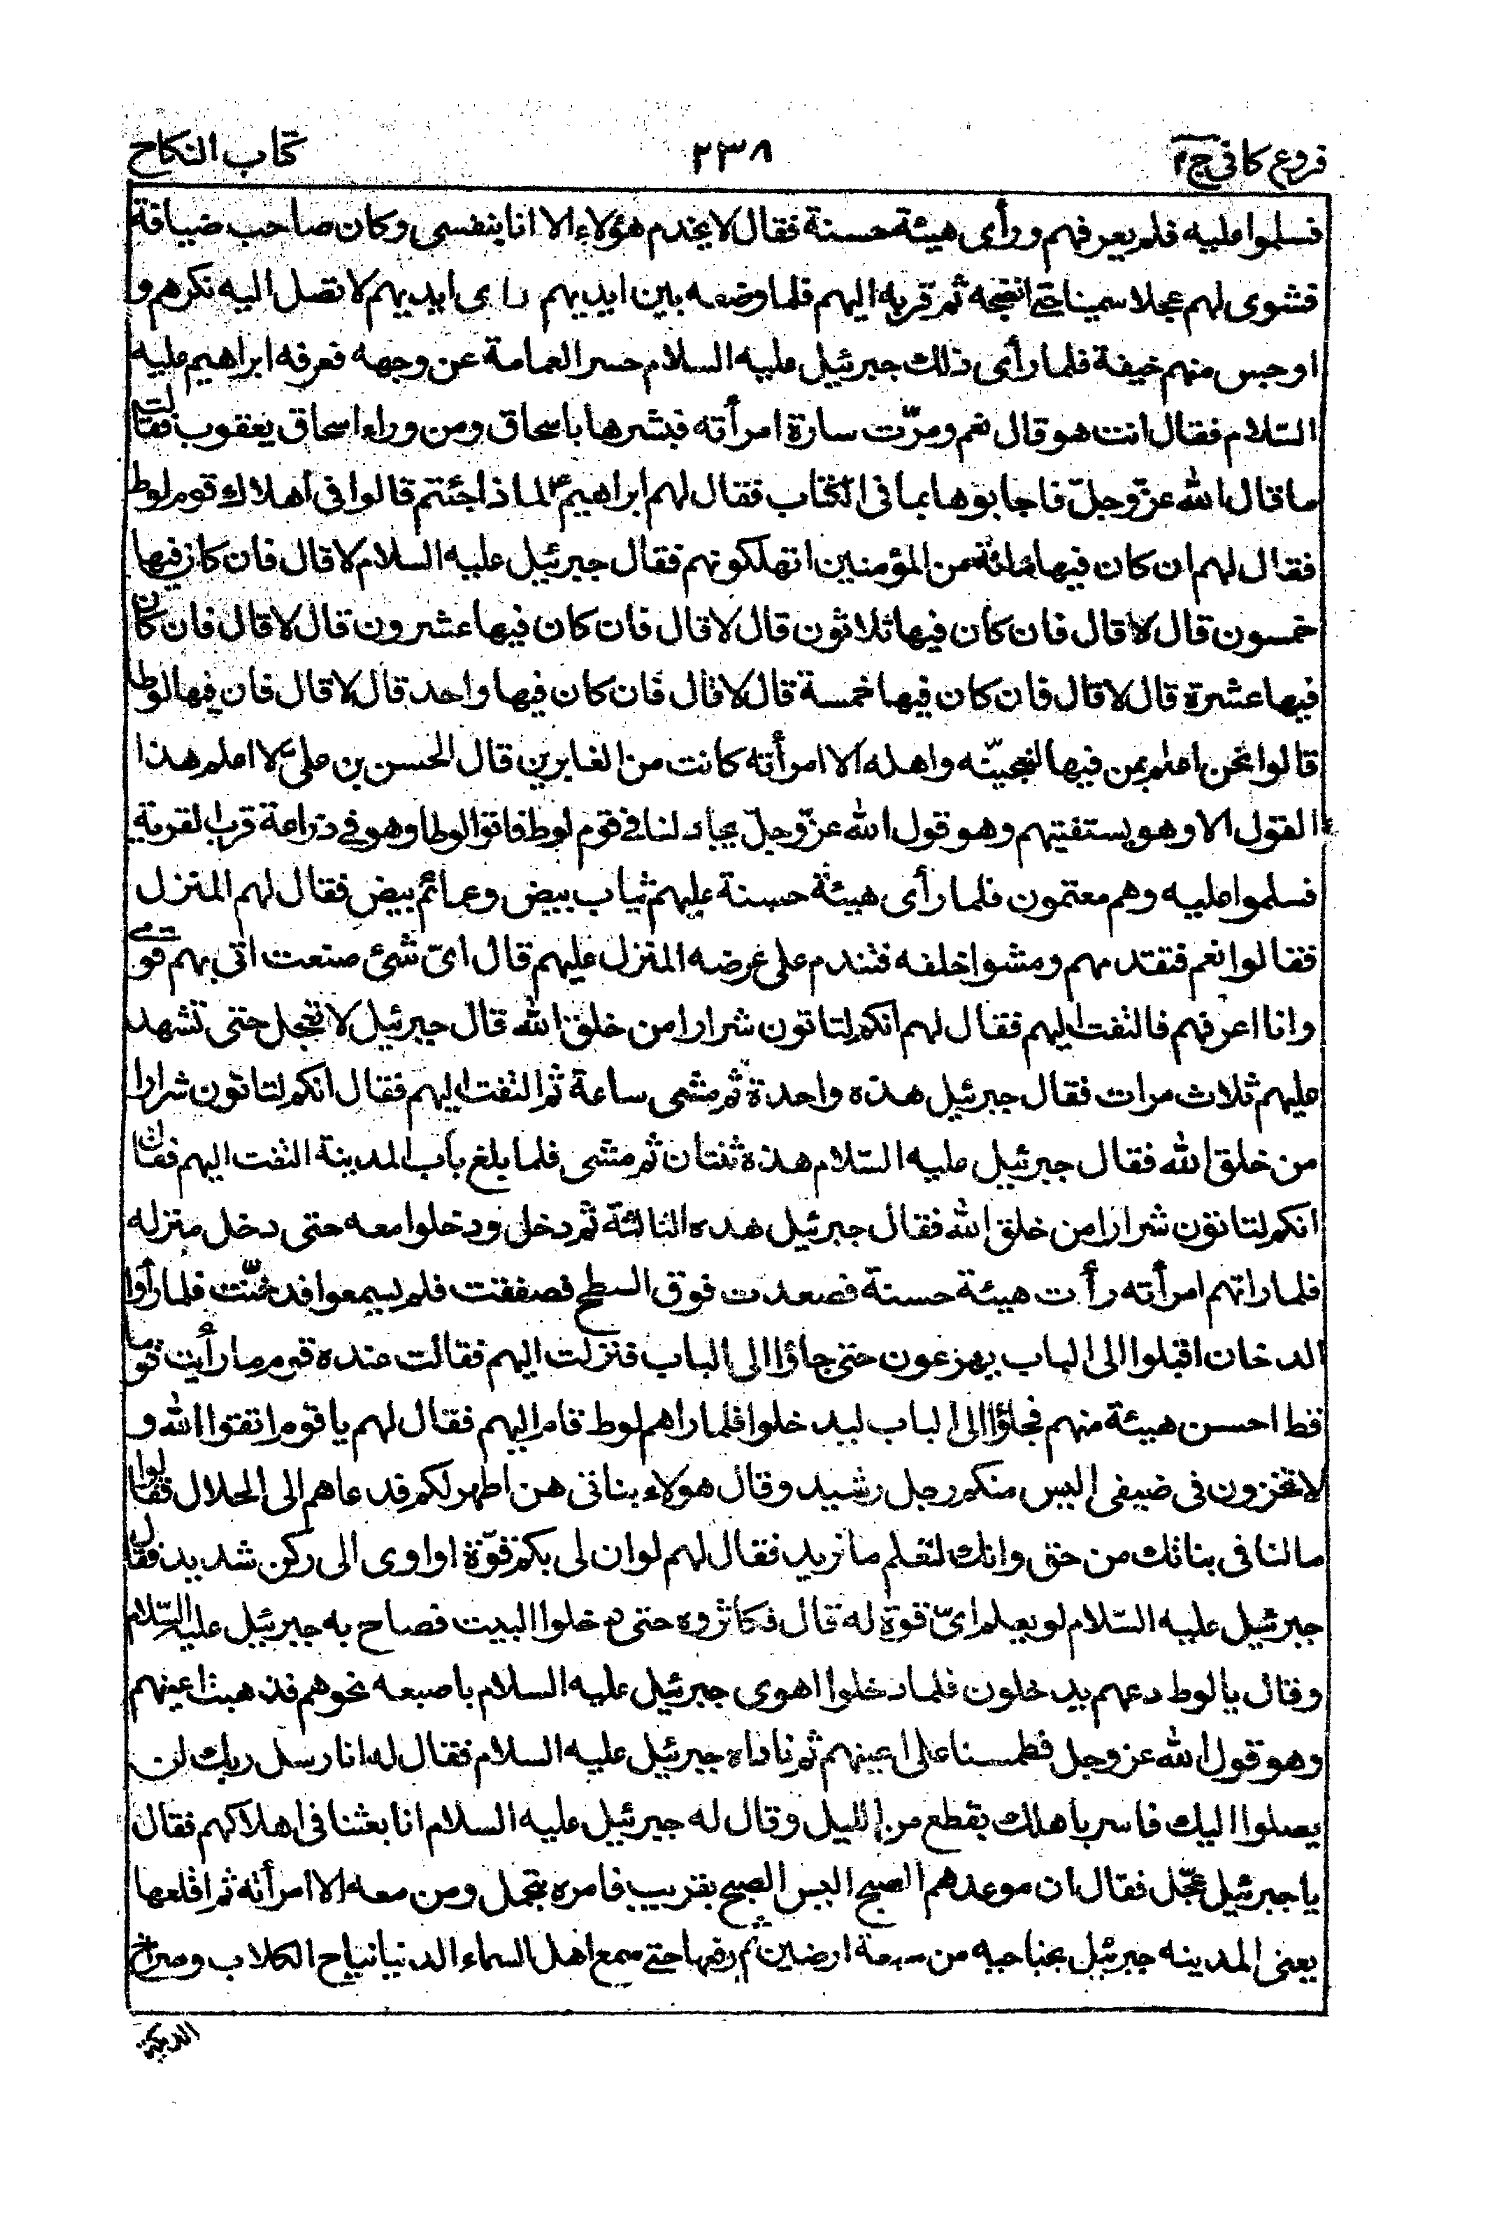 فروع كافي ج٢ ٢٣٨ كتاب النكاح
فسلموا عليه فلم يعرفهم ورأى هيئة حسنة فقال لا يخدم هؤلاء الا انا بنفسي وكان صاحب ضيافة
فشوى لهم عجلا سمينا حتى انضجه ثم قربه اليهم فلما وضعه بين ايديهم رأى ايديهم لا تصل اليه نكرهم و
اوجس منهم خيفة فلما رأى ذلك جبرئيل عليه السلام حسر العمامة عن وجهه فعرفه ابراهيم عليه
السّلام فقال انت هو قال نعم ومرّت سارة امرأته فبشرها باسحاق ومن وراء اسحاق يعقوب فقالت
ما قال الله عزّ وجلّ فاجابوها بما في الكتاب فقال لهم ابراهيم ع لما ذا جئتم قالوا في اهلاك قوم لوط
فقال لهم ان كان فيها مائة من المؤمنين اتهلكونهم فقال جبرئيل عليه السلام لا قال فان كان فيها
خمسون قال لا قال فان كان فيها ثلاثون قال لا قال فان كان فيها عشرون قال لا قال فان كان
فيها عشرة قال لا قال فان كان فيها خمسة قال لا قال فان كان فيها واحد قال لا قال فان فيها لوطا
قالوا نحن اعلم بمن فيها لننجينّه واهله الا امرأته كانت من الغابرين قال الحسن بن علي ع لا اعلم هذا
القول الا وهو يستفتيهم وهو قول الله عزّ وجلّ يجادلنا في قوم لوط فاتوا لوطا وهو في زراعة قرب القرية
فسلموا عليه وهم معتمون فلما رأى هيئة حسنة عليهم ثياب بيض وعمائم بيض فقال لهم المنزل
فقالوا نعم فتقدمهم ومشوا خلفه فتندم على عرضه المنزل عليهم قال اىّ شئ صنعت اتى بهم قومي
وانا اعرفهم فالتفت اليهم فقال لهم انكم لتاتون شرارا من خلق الله قال جبرئيل لا تعجل حتى تشهد
عليهم ثلاث مرات فقال جبرئيل هذه واحدة ثم مشى ساعة ثم التفت اليهم فقال انكم لتاتون شرارا
من خلق الله فقال جبرئيل عليه السّلام هذه ثنتان ثم مشى فلما بلغ باب المدينة التفت اليهم فقال
انكم لتاتون شرارا من خلق الله فقال جبرئيل هذه الثالثة ثم دخل ودخلوا معه حتى دخل منزله
فلما راتهم امرأته رأت هيئة حسنة فصعدت فوق السطح فصفقت فلم يسمعوا فدخّنت فلما رأوا
الدخان اقبلوا الى الباب يهرعون حتى جاؤا الى الباب فنزلت اليهم فقالت عنده قوم ما رأيت قوما
قط احسن هيئة منهم فجاؤا الى الباب ليدخلوا فلما راهم لوط قام اليهم فقال لهم يا قوم اتقوا الله و
لا تخزون في ضيفي اليس منكم رجل رشيد وقال هولاء بناتي هن اطهر لكم فدعاهم الى الحلال فقالوا
ما لنا في بناتك من حق وانك لتعلم ما نريد فقال لهم لو ان لي بكم قوّة او اوى الى ركن شديد فقال
جبرئيل عليه السّلام لو يعلم اىّ قوة له قال فكاثروه حتى دخلوا البيت فصاح به جبرئيل عليه السّلام
وقال يا لوط دعهم يدخلون فلما دخلوا اهوى جبرئيل عليه السلام باصبعه نحوهم فذهبت اعينهم
وهو قول الله عز وجل فطمسنا على اعينهم ثم ناداه جبرئيل عليه السلام فقال له انا رسل ربك لن
يصلوا اليك فاسر باهلك بقطع من الليل وقال له جبرئيل عليه السلام انا بعثنا في اهلاكهم فقال
يا جبرئيل عجّل فقال ان موعدهم الصبح اليس الصبح بقريب فامره بتحمل ومن معه الا امرأته ثم اقلعها
يعني المدينه جبرئيل بجناحيه من سبعة ارضين ثم رفعها حتى سمع اهل السماء الدنيا نباح الكلاب وصراخ
الديكة